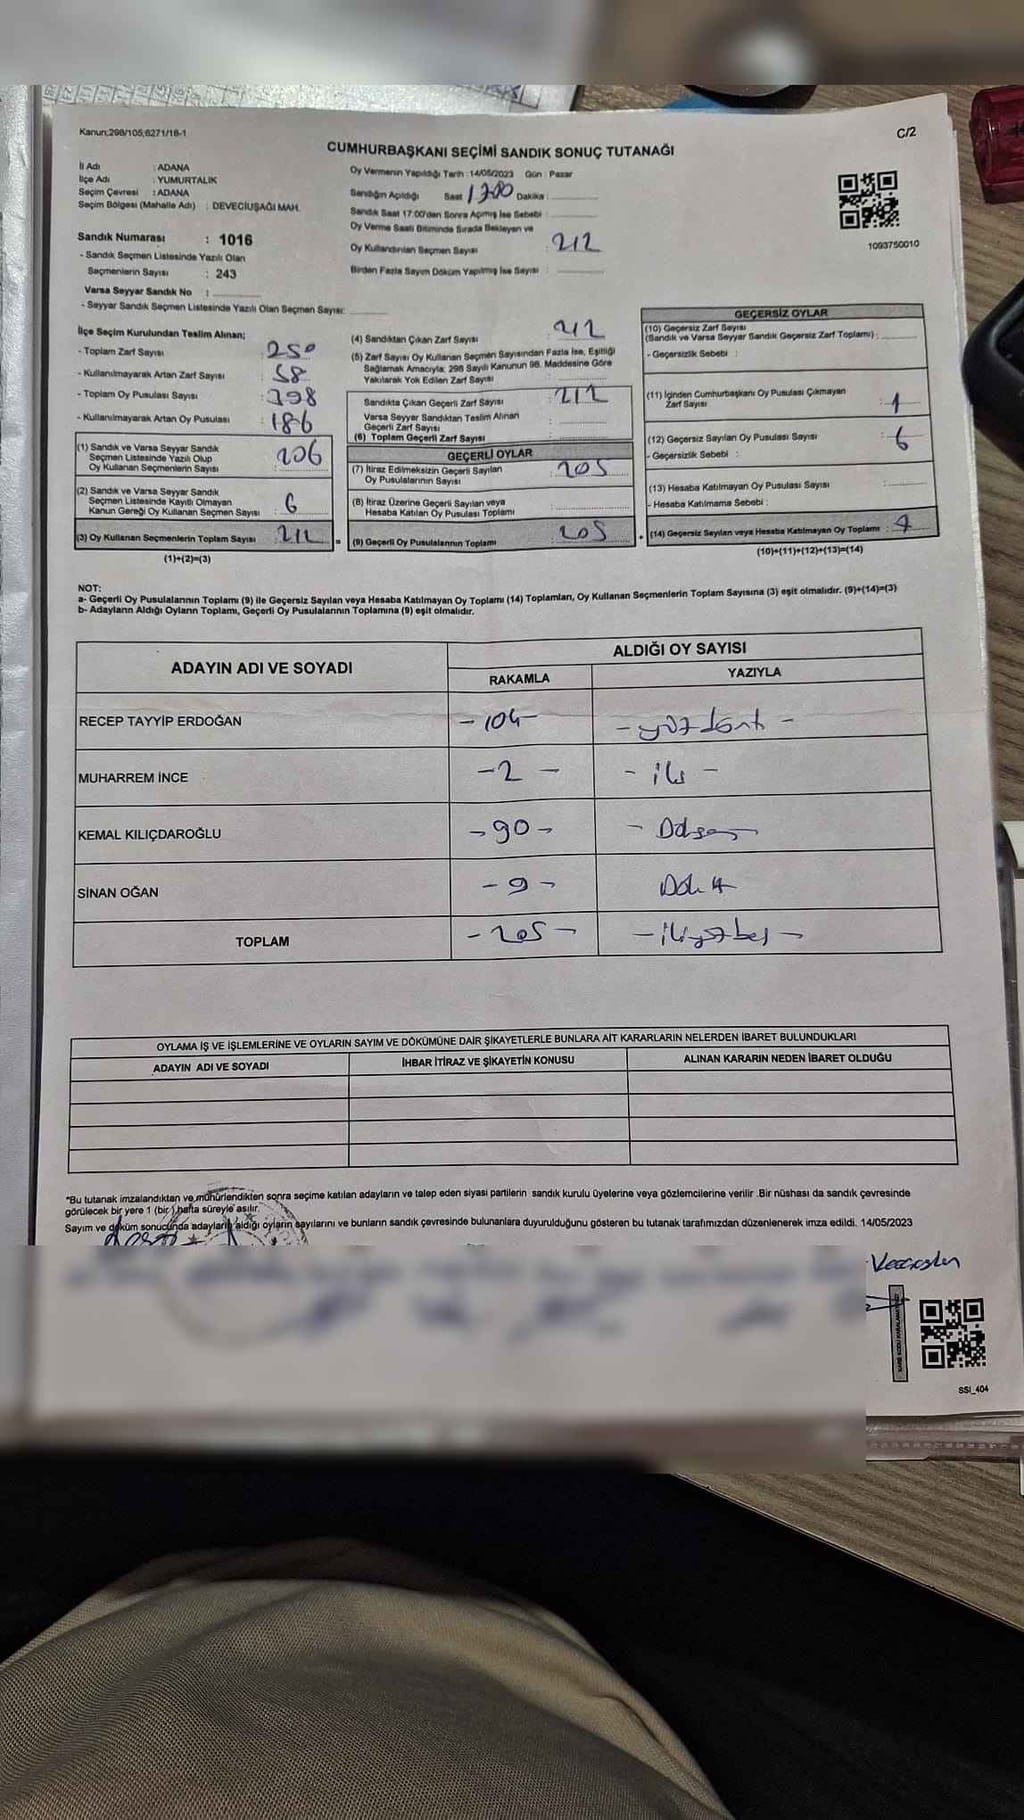 Kanun;298/105;6271/18-1
C/2
CUMHURBAŞKANI SEÇİMİ SANDIK SONUÇ TUTANAĞI
İl Adı : ADANA
İlçe Adı : YUMURTALIK
Seçim Çevresi : ADANA
Seçim Bölgesi (Mahalle Adı) : DEVECİUŞAĞI MAH.
Sandık Numarası : 1016
- Sandık Seçmen Listesinde Yazılı Olan
Seçmenlerin Sayısı : 243
Varsa Seyyar Sandık No :
- Seyyar Sandık Seçmen Listesinde Yazılı Olan Seçmen Sayısı:
Oy Vermenin Yapıldığı Tarih :14/05/2023 Gün : Pazar
Sandığın Açıldığı Saat 17:00 Dakika :
Sandık Saat 17:00'den Sonra Açmış İse Sebebi :
Oy Verme Saati Bitiminde Sırada Bekleyen ve
Oy Kullandırılan Seçmen Sayısı : 212
Birden Fazla Sayım Döküm Yapılmış İse Sayısı :
1093750010
İlçe Seçim Kurulundan Teslim Alınan;
- Toplam Zarf Sayısı : 250
- Kullanılmayarak Artan Zarf Sayısı : 38
- Toplam Oy Pusulası Sayısı : 398
- Kullanılmayarak Artan Oy Pusulası : 186
(1) Sandık ve Varsa Seyyar Sandık
Seçmen Listesinde Yazılı Olup
Oy Kullanan Seçmenlerin Sayısı : 206
(2) Sandık ve Varsa Seyyar Sandık
Seçmen Listesinde Kayıtlı Olmayan
Kanun Gereği Oy Kullanan Seçmen Sayısı : 6
(3) Oy Kullanan Seçmenlerin Toplam Sayısı : 212
(1)+(2)=(3)
(4) Sandıktan Çıkan Zarf Sayısı : 212
(5) Zarf Sayısı Oy Kullanan Seçmen Sayısından Fazla İse, Eşitliği
Sağlamak Amacıyla; 298 Sayılı Kanunun 98. Maddesine Göre
Yakılarak Yok Edilen Zarf Sayısı :
Sandıkta Çıkan Geçerli Zarf Sayısı : 212
Varsa Seyyar Sandıktan Teslim Alınan
Geçerli Zarf Sayısı :
(6) Toplam Geçerli Zarf Sayısı :
GEÇERLİ OYLAR
(7) İtiraz Edilmeksizin Geçerli Sayılan
Oy Pusulalarının Sayısı : 205
(8) İtiraz Üzerine Geçerli Sayılan veya
Hesaba Katılan Oy Pusulası Toplamı :
= (9) Geçerli Oy Pusulalarının Toplamı : 205
GEÇERSİZ OYLAR
(10) Geçersiz Zarf Sayısı
(Sandık ve Varsa Seyyar Sandık Geçersiz Zarf Toplamı) :
- Geçersizlik Sebebi :
(11) İçinden Cumhurbaşkanı Oy Pusulası Çıkmayan
Zarf Sayısı : 1
(12) Geçersiz Sayılan Oy Pusulası Sayısı : 6
- Geçersizlik Sebebi :
(13) Hesaba Katılmayan Oy Pusulası Sayısı :
- Hesaba Katılmama Sebebi :
+ (14) Geçersiz Sayılan veya Hesaba Katılmayan Oy Toplamı : 7
(10)+(11)+(12)+(13)=(14)
NOT:
a- Geçerli Oy Pusulalarının Toplamı (9) ile Geçersiz Sayılan veya Hesaba Katılmayan Oy Toplamı (14) Toplamları, Oy Kullanan Seçmenlerin Toplam Sayısına (3) eşit olmalıdır. (9)+(14)=(3)
b- Adayların Aldığı Oyların Toplamı, Geçerli Oy Pusulalarının Toplamına (9) eşit olmalıdır.
ADAYIN ADI VE SOYADI
ALDIĞI OY SAYISI
RAKAMLA YAZIYLA
RECEP TAYYİP ERDOĞAN -104- -yüzdört-
MUHARREM İNCE -2- -iki-
KEMAL KILIÇDAROĞLU -90- -Doksan-
SİNAN OĞAN -9- Dokuz
TOPLAM -205- -ikiyüzbeş-
OYLAMA İŞ VE İŞLEMLERİNE VE OYLARIN SAYIM VE DÖKÜMÜNE DAİR ŞİKAYETLERLE BUNLARA AİT KARARLARIN NELERDEN İBARET BULUNDUKLARI
ADAYIN ADI VE SOYADI İHBAR İTİRAZ VE ŞİKAYETİN KONUSU ALINAN KARARIN NEDEN İBARET OLDUĞU
*Bu tutanak imzalandıktan ve mühürlendikten sonra seçime katılan adayların ve talep eden siyasi partilerin sandık kurulu üyelerine veya gözlemcilerine verilir .Bir nüshası da sandık çevresinde
görülecek bir yere 1 (bir ) hafta süreyle asılır.
Sayım ve döküm sonucunda adayların aldığı oyların sayılarını ve bunların sandık çevresinde bulunanlara duyurulduğunu gösteren bu tutanak tarafımızdan düzenlenerek imza edildi. 14/05/2023
SSI_404